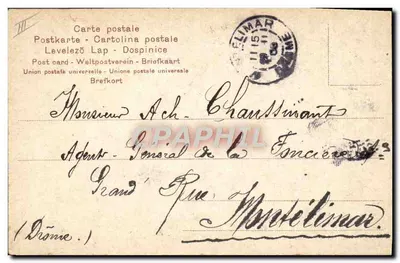 III
Carte postale
Postkarte - Cartolina postale
Levelező Lap - Dopisnice
Post card - Weltpostverein - Briefkaart
Union postale universelle - Unione postale universale
Brefkort
ELIMAR
DROME
Monsieur Ach - Chaussinant
Agent - Général de la Foncière
Grand' Rue
Montélimar.
(Drôme)
CARPHTIL